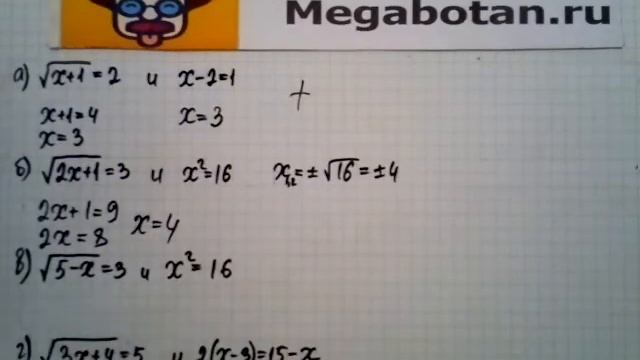 Megabotan.ru
а) √x+1 = 2 и x-2=1 +
x+1=4 x=3
x=3
б) √2x+1 = 3 и x²=16 x₁,₂=±√16=±4
2x+1=9 x=4
2x=8
в) √5-x = 3 и x²=16
г) √3x+4 = 5 и 2(x-3)=15-x